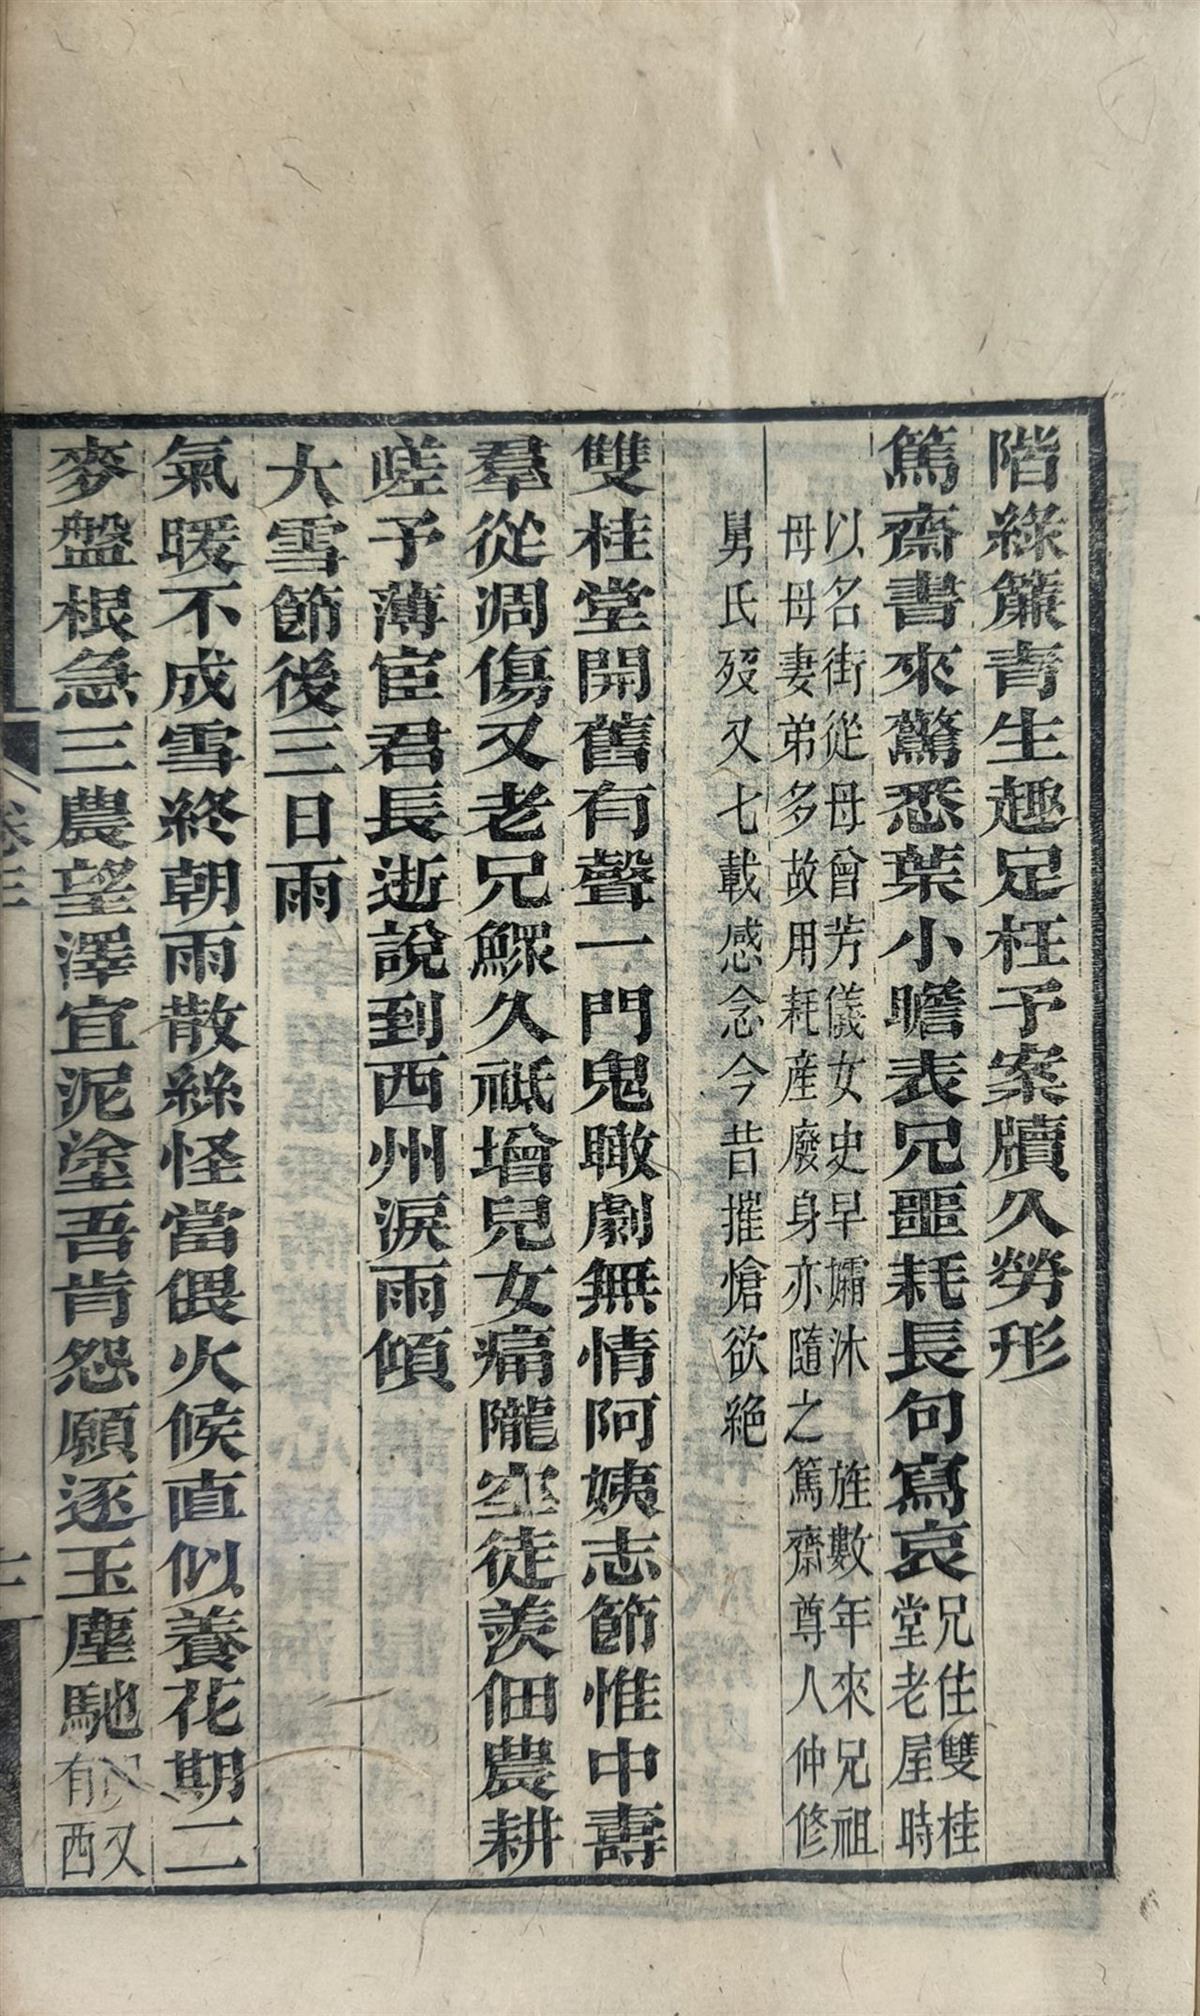 階綠簾青生趣足枉予案牘久勞形
篤齋書來驚悉葉小瞻表兄噩耗長句寫哀
兄住雙桂
堂老屋時
以名街從母曾芳儀女史早孀沐 旌數年來兄祖
母母妻弟多故用耗産廢身亦隨之篤齋尊人仲修
舅氏歿又七載感念今昔摧愴欲絶
雙桂堂開舊有聲一門鬼瞰劇無情阿姨志節惟中壽
羣從凋傷又老兄鰥久祗增兒女痛隴空徒羨佃農耕
嗟予薄宦君長逝說到西州淚雨傾
大雪節後三日雨
氣暖不成雪終朝雨散絲怪當偎火候直似養花期二
麥盤根急三農望澤宜泥塗吾肯怨願逐玉塵馳
又
有西
卷三